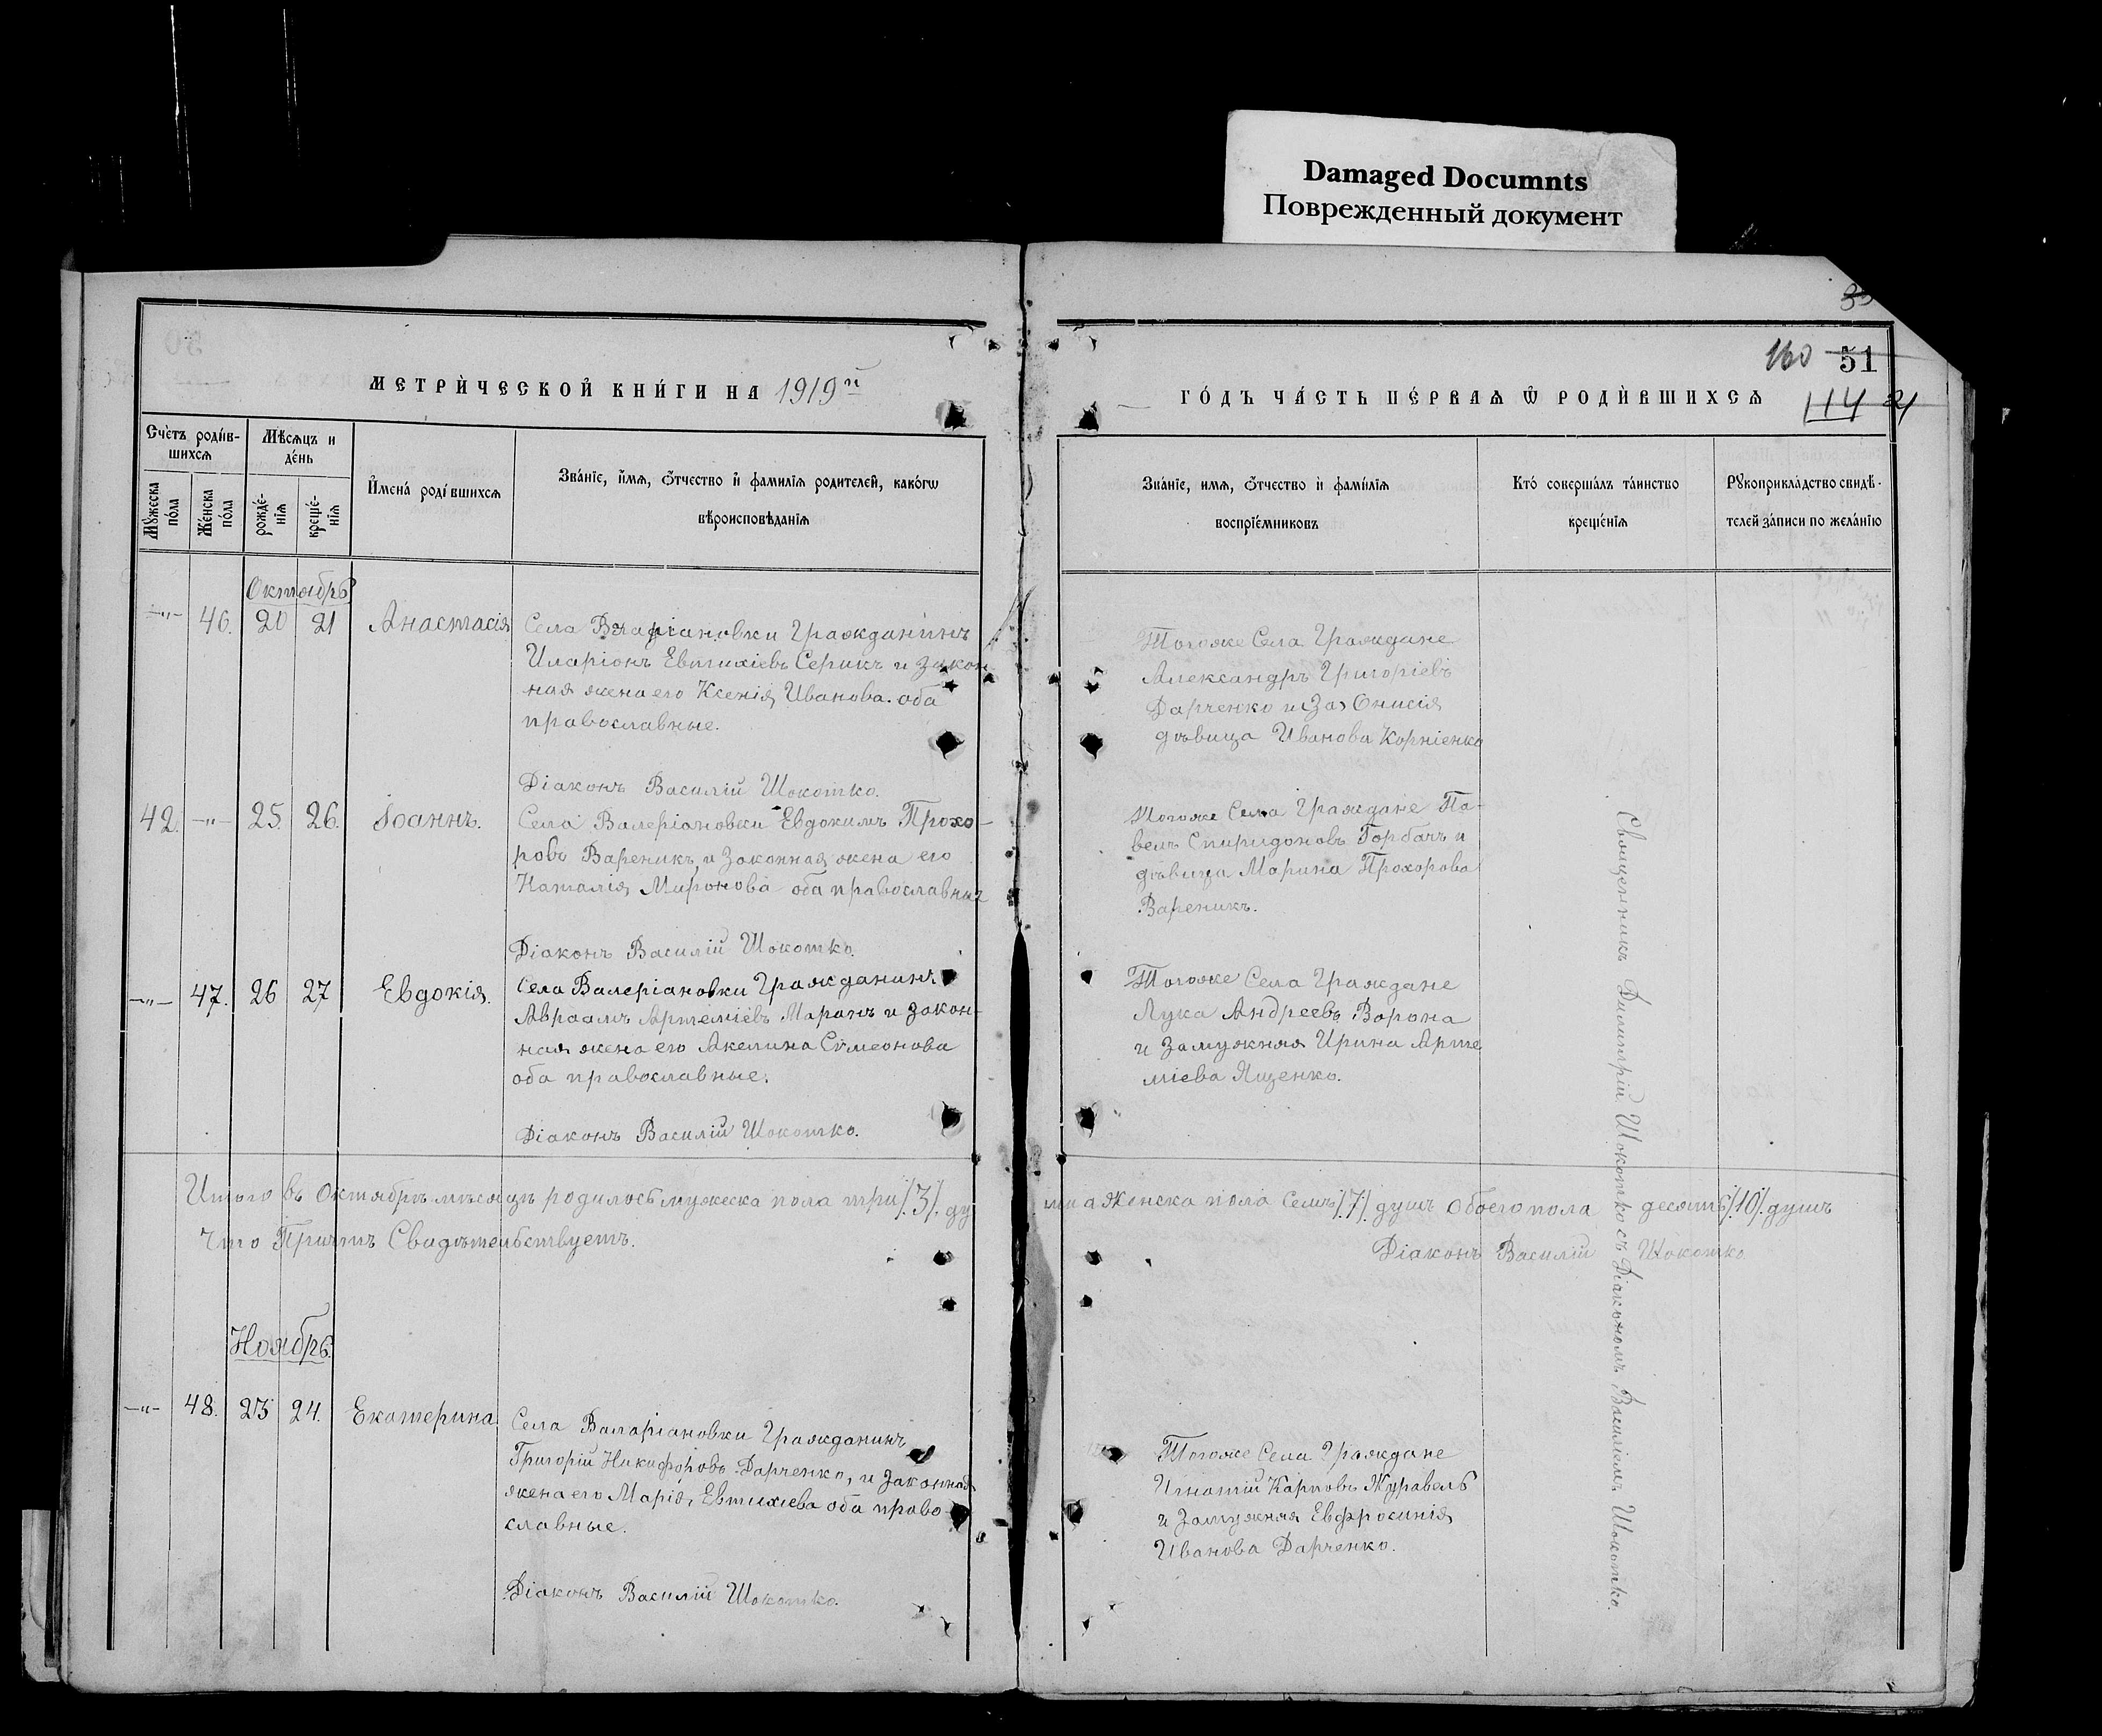 Damaged Documnts
Поврежденный документ
160 51
114
МЕТРИ́ЧЕСКОЙ КНИ́ГИ НА 1919й
ГО́ДЪ ЧА́СТЬ ПЕ́РВАѦ Ѡ҆ РОДИ́ВШИХСѦ
Сче́тъ роди́в-
шихсѧ
Мѣ́сѧцъ и
де́нь
Мꙋ́жеска по́ла
Же́нска по́ла
рожде́-
нїѧ
креще́-
нїѧ
И҆мена̀ роди́вшихсѧ
Зва́нїе, и҆́мѧ, ѻ҆́тчество и҆ фами́лїѧ родителей, како́гѡ
вѣроисповѣ́данїѧ
Зва́нїе, имѧ, ѻ҆́тчество и҆ фами́лїѧ
воспрїе́мниковъ
Кто̀ соверша́лъ та́инство
креще́нїѧ
Рꙋкоприкла́дство свидѣ́-
телей за́писи по жела́нїю
Октябрь
—"— 46. 20 21 Анастасія
Села Валаріановки Гражданинъ
Иларіонъ Евтихіевъ Серикъ и закон
ная жена его Ксенія Иванова. оба
православные.
Діаконъ Василій Шокотко.
Тогоже Села Граждане
Александръ Григоріевъ
Дарченко и Онисія
дѣвица Иванова Корніенко
42. —"— 25. 26. Іоаннъ.
Села Валеріановки Евдокимъ Прохо-
ровъ Вареникъ и Законная жена его
Наталія Миронова оба православные
Діаконъ Василій Шокотко.
Тогоже Села Граждане Па-
велъ Спиридоновъ Горбачъ и
дѣвица Марина Прохорова
Вареникъ.
—"— 47. 26 27 Евдокія.
Села Валеріановки Гражданинъ
Авраамъ Артеміевъ Маранъ и закон-
ная жена его Акелина Сѵмеонова
оба православные.
Діаконъ Василій Шокотко.
Тогоже Села Граждане
Лука Андреевъ Ворона
и Замужняя Ирина Арте
міева Ященко.
Итого въ Октябрѣ мѣсяцѣ родилось мужеска пола три/3/. ду
ши а Женска пола Семъ/7/ душъ Обоего пола десять/10/. душъ
Что Причтъ Свидѣтельствуетъ.
Діаконъ Василій Шокотко
Ноябрь.
—"— 48. 23 24. Екатерина
Села Валаріановки Гражданинъ
Григорій Никифоровъ Дарченко, и законная
жена его Марія, Евтихіева оба право-
славные.
Діаконъ Василій Шокотко.
Тогоже Села Граждане
Игнатій Карповъ Журавель
и Замужняя Евфросинія
Иванова Дарченко.
Священникъ Димитрій Шокотко съ Діакономъ Василіемъ Шокотко.